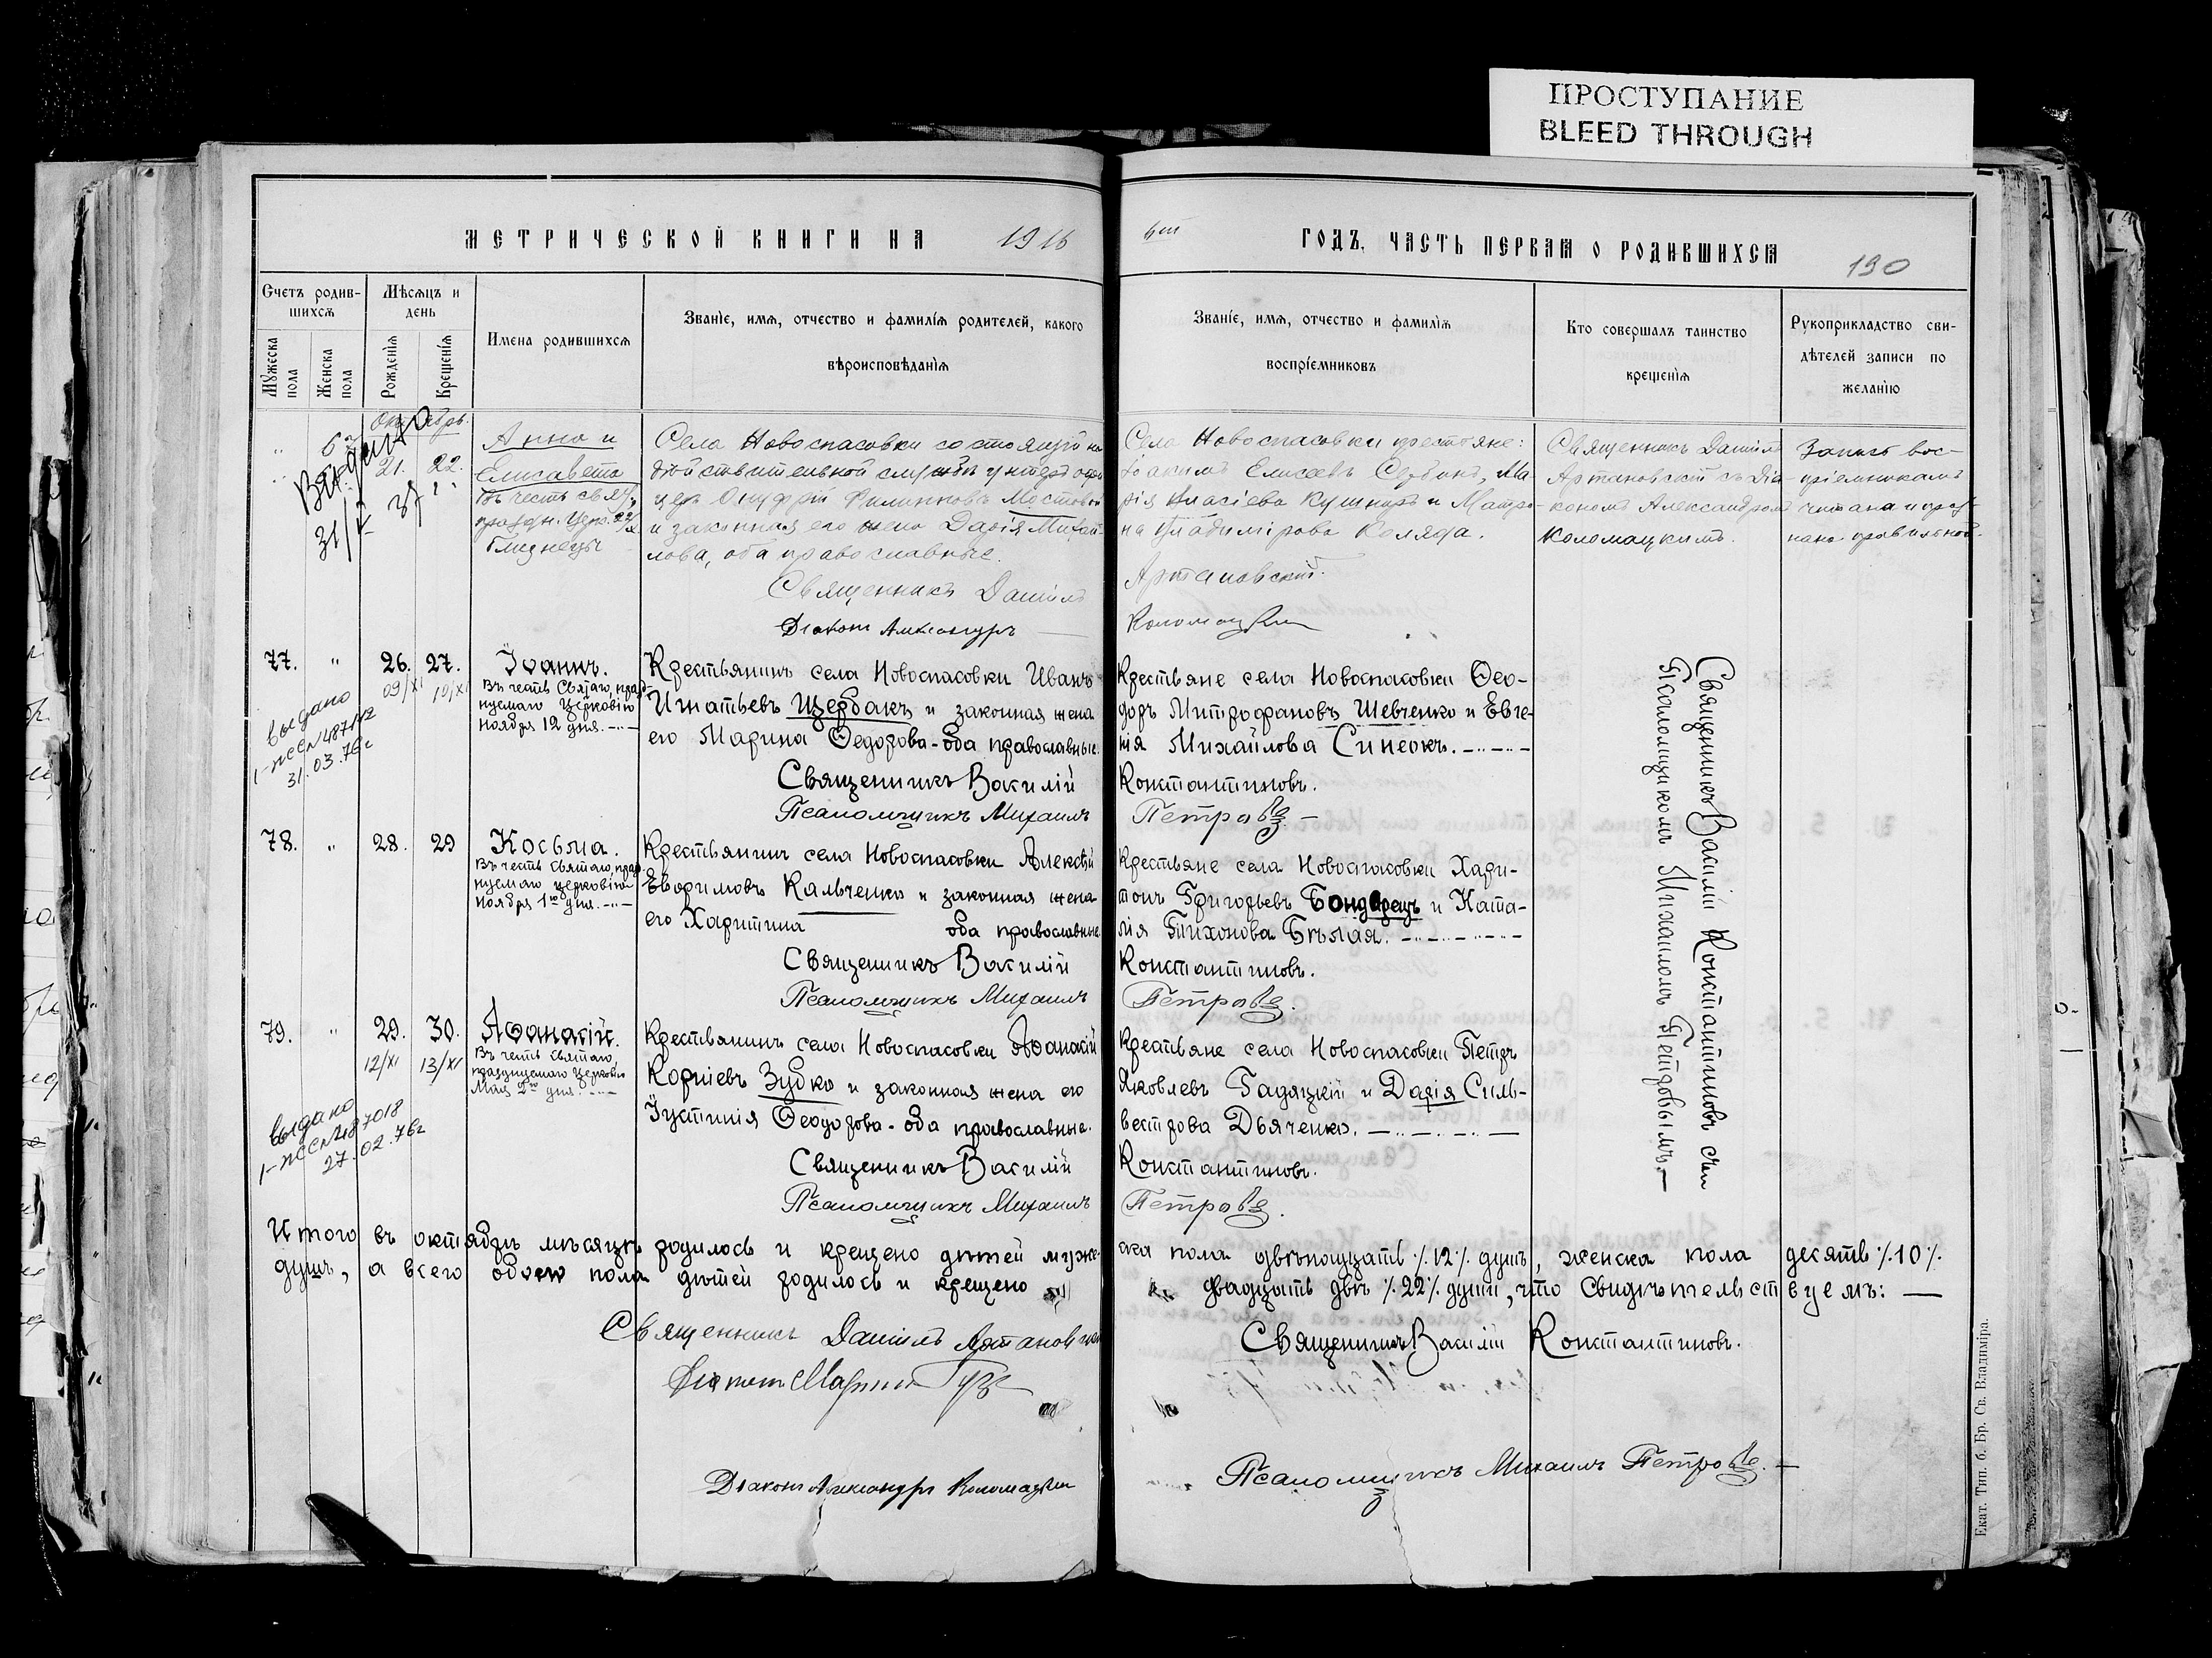 ПРОСТУПАНИЕ
BLEED THROUGH
МЕТРИЧЕСКОЙ КНИГИ НА 1916
ГОДЪ, ЧАСТЬ ПЕРВАЯ О РОДИВШИХСЯ
190
Счетъ родив-
шихся
Мужеска
пола
Женска
пола
Мѣсяцъ и
день
Рожденія
Крещенія
Имена родившихся
Званіе, имя, отчество и фамилія родителей, какого
вѣроисповѣданія
Званіе, имя, отчество и фамилія
воспріемниковъ
Кто совершалъ таинство
крещенія
Рукоприкладство сви-
дѣтелей записи по
желанію
21. 22.
Анна и
Елисавета
въ честь
близнецы
Села Новоспасовки состоящій на
дѣйствительной службѣ унтеръ офи
церъ Онуфрій Филипповъ Мостовой
и законная его жена Дарія Михай
лова, оба православные.
Священникъ Даніилъ
Діаконъ Александръ
Села Новоспасовки крестьяне:
Іоакимъ Елисеевъ Сербинъ, Ма
рія Власіева Кушниръ и Матро-
на Владимірова Коляда.
Артановскій.
Священникъ Даніилъ
Артановскій съ Діа-
кономъ Александромъ
Коломацкимъ.
Запись вос-
пріемникамъ
читана и приз-
нана правильной.
77. " 26. 27. Іоаннъ.
09/XI 10/XI
Въ честь Святаго, празд-
нуемаго Церковію
ноября 12 дня.
выдано
31.03.76г
Крестьянинъ села Новоспасовки Иванъ
Игнатьевъ Щербакъ и законная жена
его Марина Ѳедорова - оба православные.
Священникъ Василій
Псаломщикъ Михаилъ
Крестьяне села Новоспасовки Ѳео-
доръ Митрофановъ Шевченко и Евге-
нія Михайлова Синеокъ.
Константиновъ.
Петровъ
Священникъ Василій Константиновъ съ
Псаломщикомъ Михаиломъ Петровымъ.
78. " 28. 29 Косьма.
Въ честь Святаго, празд-
нуемаго церковію
ноября 1го дня.
Крестьянинъ села Новоспасовки Алексѣй
Евфимовъ Кальченко и законная жена
его Харитина оба православные
Священникъ Василій
Псаломщикъ Михаилъ
Крестьяне села Новоспасовки Хари-
тонъ Григорьевъ Бондарецъ и Ната-
лія Тихонова Бѣлая.
Константиновъ.
Петровъ
79. " 29. 30. Аѳанасій.
12/XI 13/XI
Въ честь Святаго,
празднуемаго Церковію
Мая 2го дня.
выдано
27.02.76г
Крестьянинъ села Новоспасовки Аѳанасій
Корніевъ Зубко и законная жена его
Іустинія Ѳеодорова - оба православные.
Священникъ Василій
Псаломщикъ Михаилъ
Крестьяне села Новоспасовки Петръ
Яковлевъ Гадяцкій и Дарія Силь-
вестрова Дьяченко.
Константиновъ.
Петровъ
Итого въ октябрѣ мѣсяцѣ родилось и крещено дѣтей муже-ска пола двѣнадцать %12% душъ, женска пола десять %10%
душъ, а всего обоего пола дѣтей родилось и крещено двадцать двѣ %22% души, что свидѣтельствуемъ:
Священникъ Даніилъ Артановскій
Священникъ Василій Константиновъ.
Діаконъ
Діаконъ Александръ Коломацкій
Псаломщикъ Михаилъ Петровъ.
Екат. Тип. б. Бр. Св. Владиміра.